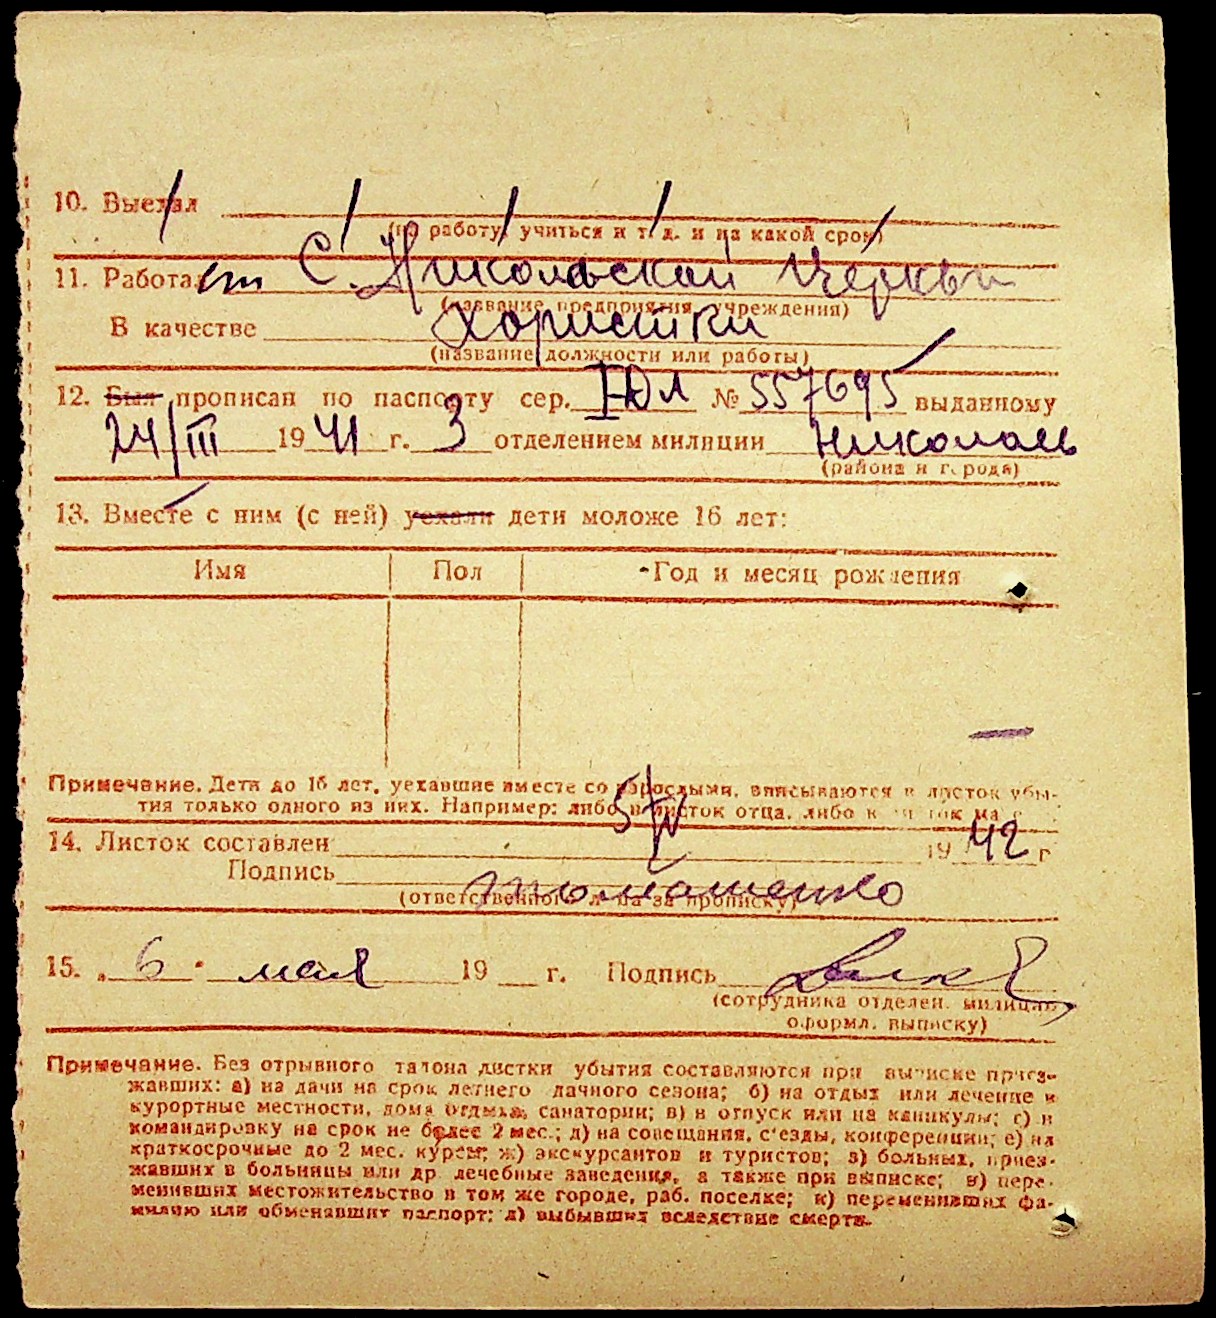 10. Выехал
(на работу, учиться и т. д. и на какой срок)
11. Работает С. Никольской Церкви
(название предприятия, учреждения)
В качестве хористки
(название должности или работы)
12. Был прописан по паспорту сер. I-ЮЛ № 557695 выданному
24/III 1941 г. 3 отделением милиции Николаев
(района и города)
13. Вместе с ним (с ней) уехали дети моложе 16 лет:
Имя Пол Год и месяц рождения
Примечание. Дети до 16 лет, уехавшие вместе со взрослыми, вписываются в листок убы-
тия только одного из них. Например: либо в листок отца, либо в листок ма
14. Листок составлен 5/V 1942 г
Подпись
(ответственного лица за прописку)
15. „6" мая 19 г. Подпись
(сотрудника отделен. милиции,
оформл. выписку)
Примечание. Без отрывного талона листки убытия составляются при выписке приез-
жавших: а) на дачи на срок летнего дачного сезона; б) на отдых или лечение в
курортные местности, дома отдыха, санатории; в) в отпуск или на каникулы; г) в
командировку на срок не более 2 мес.; д) на совещания, с'езды, конференции; е) на
краткосрочные до 2 мес. курсы; ж) экскурсантов и туристов; з) больных, приез-
жавших в больницы или др лечебные заведения, а также при выписке; и) пере-
менивших местожительство в том же городе, раб. поселке; к) переменивших фа-
милию или обменявших паспорт; л) выбывших вследствие смерти.